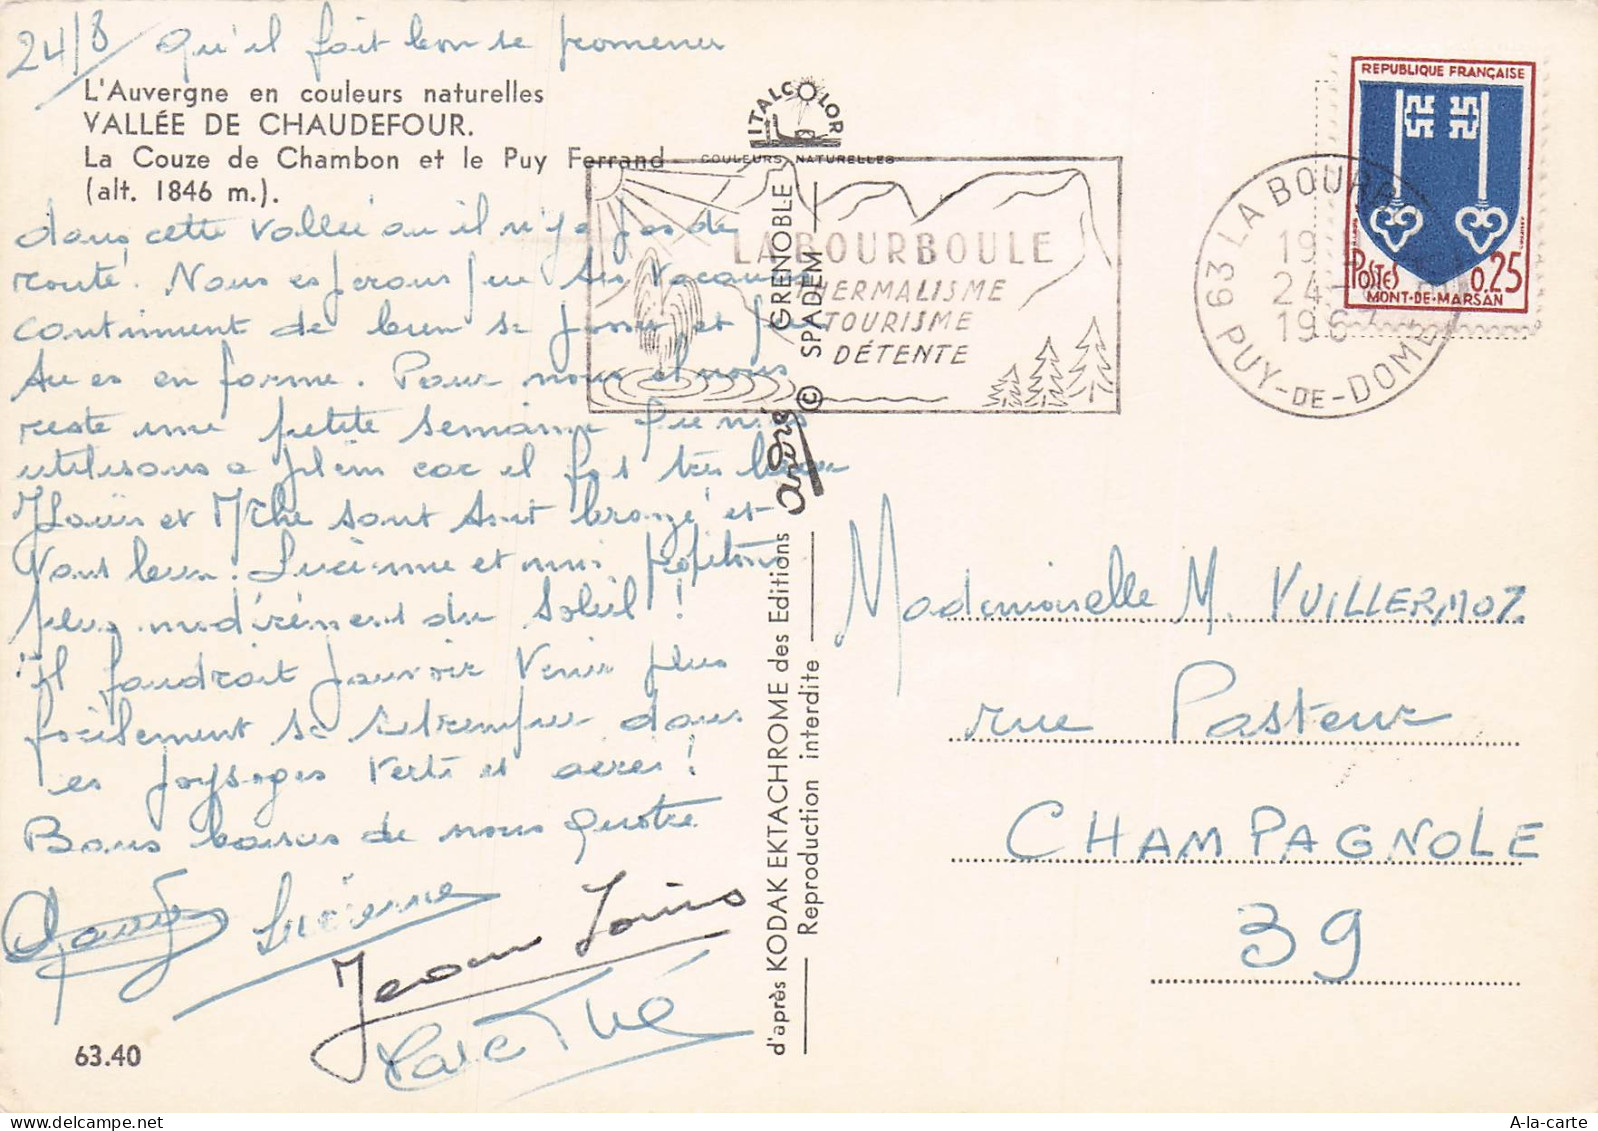 24/8 Qu'il fait bon se promener
L'Auvergne en couleurs naturelles
VALLÉE DE CHAUDEFOUR.
La Couze de Chambon et le Puy Ferrand
(alt. 1846 m.).
dans cette vallée où il n'y a pas de
route. Nous espérons que tes vacances
continuent de bien se passer et que
tu es en forme. Pour nous il nous
reste une petite semaine que nous
utilisons a plein car il fait très beau
JLouis et Mthé sont tout bronzé et
vont bien. Lucienne et moi profitons
plus modérément du soleil !
il faudrait pouvoir venir plus
facilement se retremper dans
ces paysages verts et aérés !
Bons baisers de nous quatre
Lucienne
Jean Louis
63.40
ITALCOLOR
COULEURS NATURELLES
LA BOURBOULE
THERMALISME
TOURISME
DÉTENTE
GRENOBLE
© SPADEM
d'après KODAK EKTACHROME des Editions
Reproduction interdite
63 LA BOURBOULE
24
1967
PUY-DE-DOME
REPUBLIQUE FRANÇAISE
POSTES 0,25
MONT-DE-MARSAN
Mademoiselle M. VUILLERMOZ
rue Pasteur
CHAMPAGNOLE
39
A-la-carte